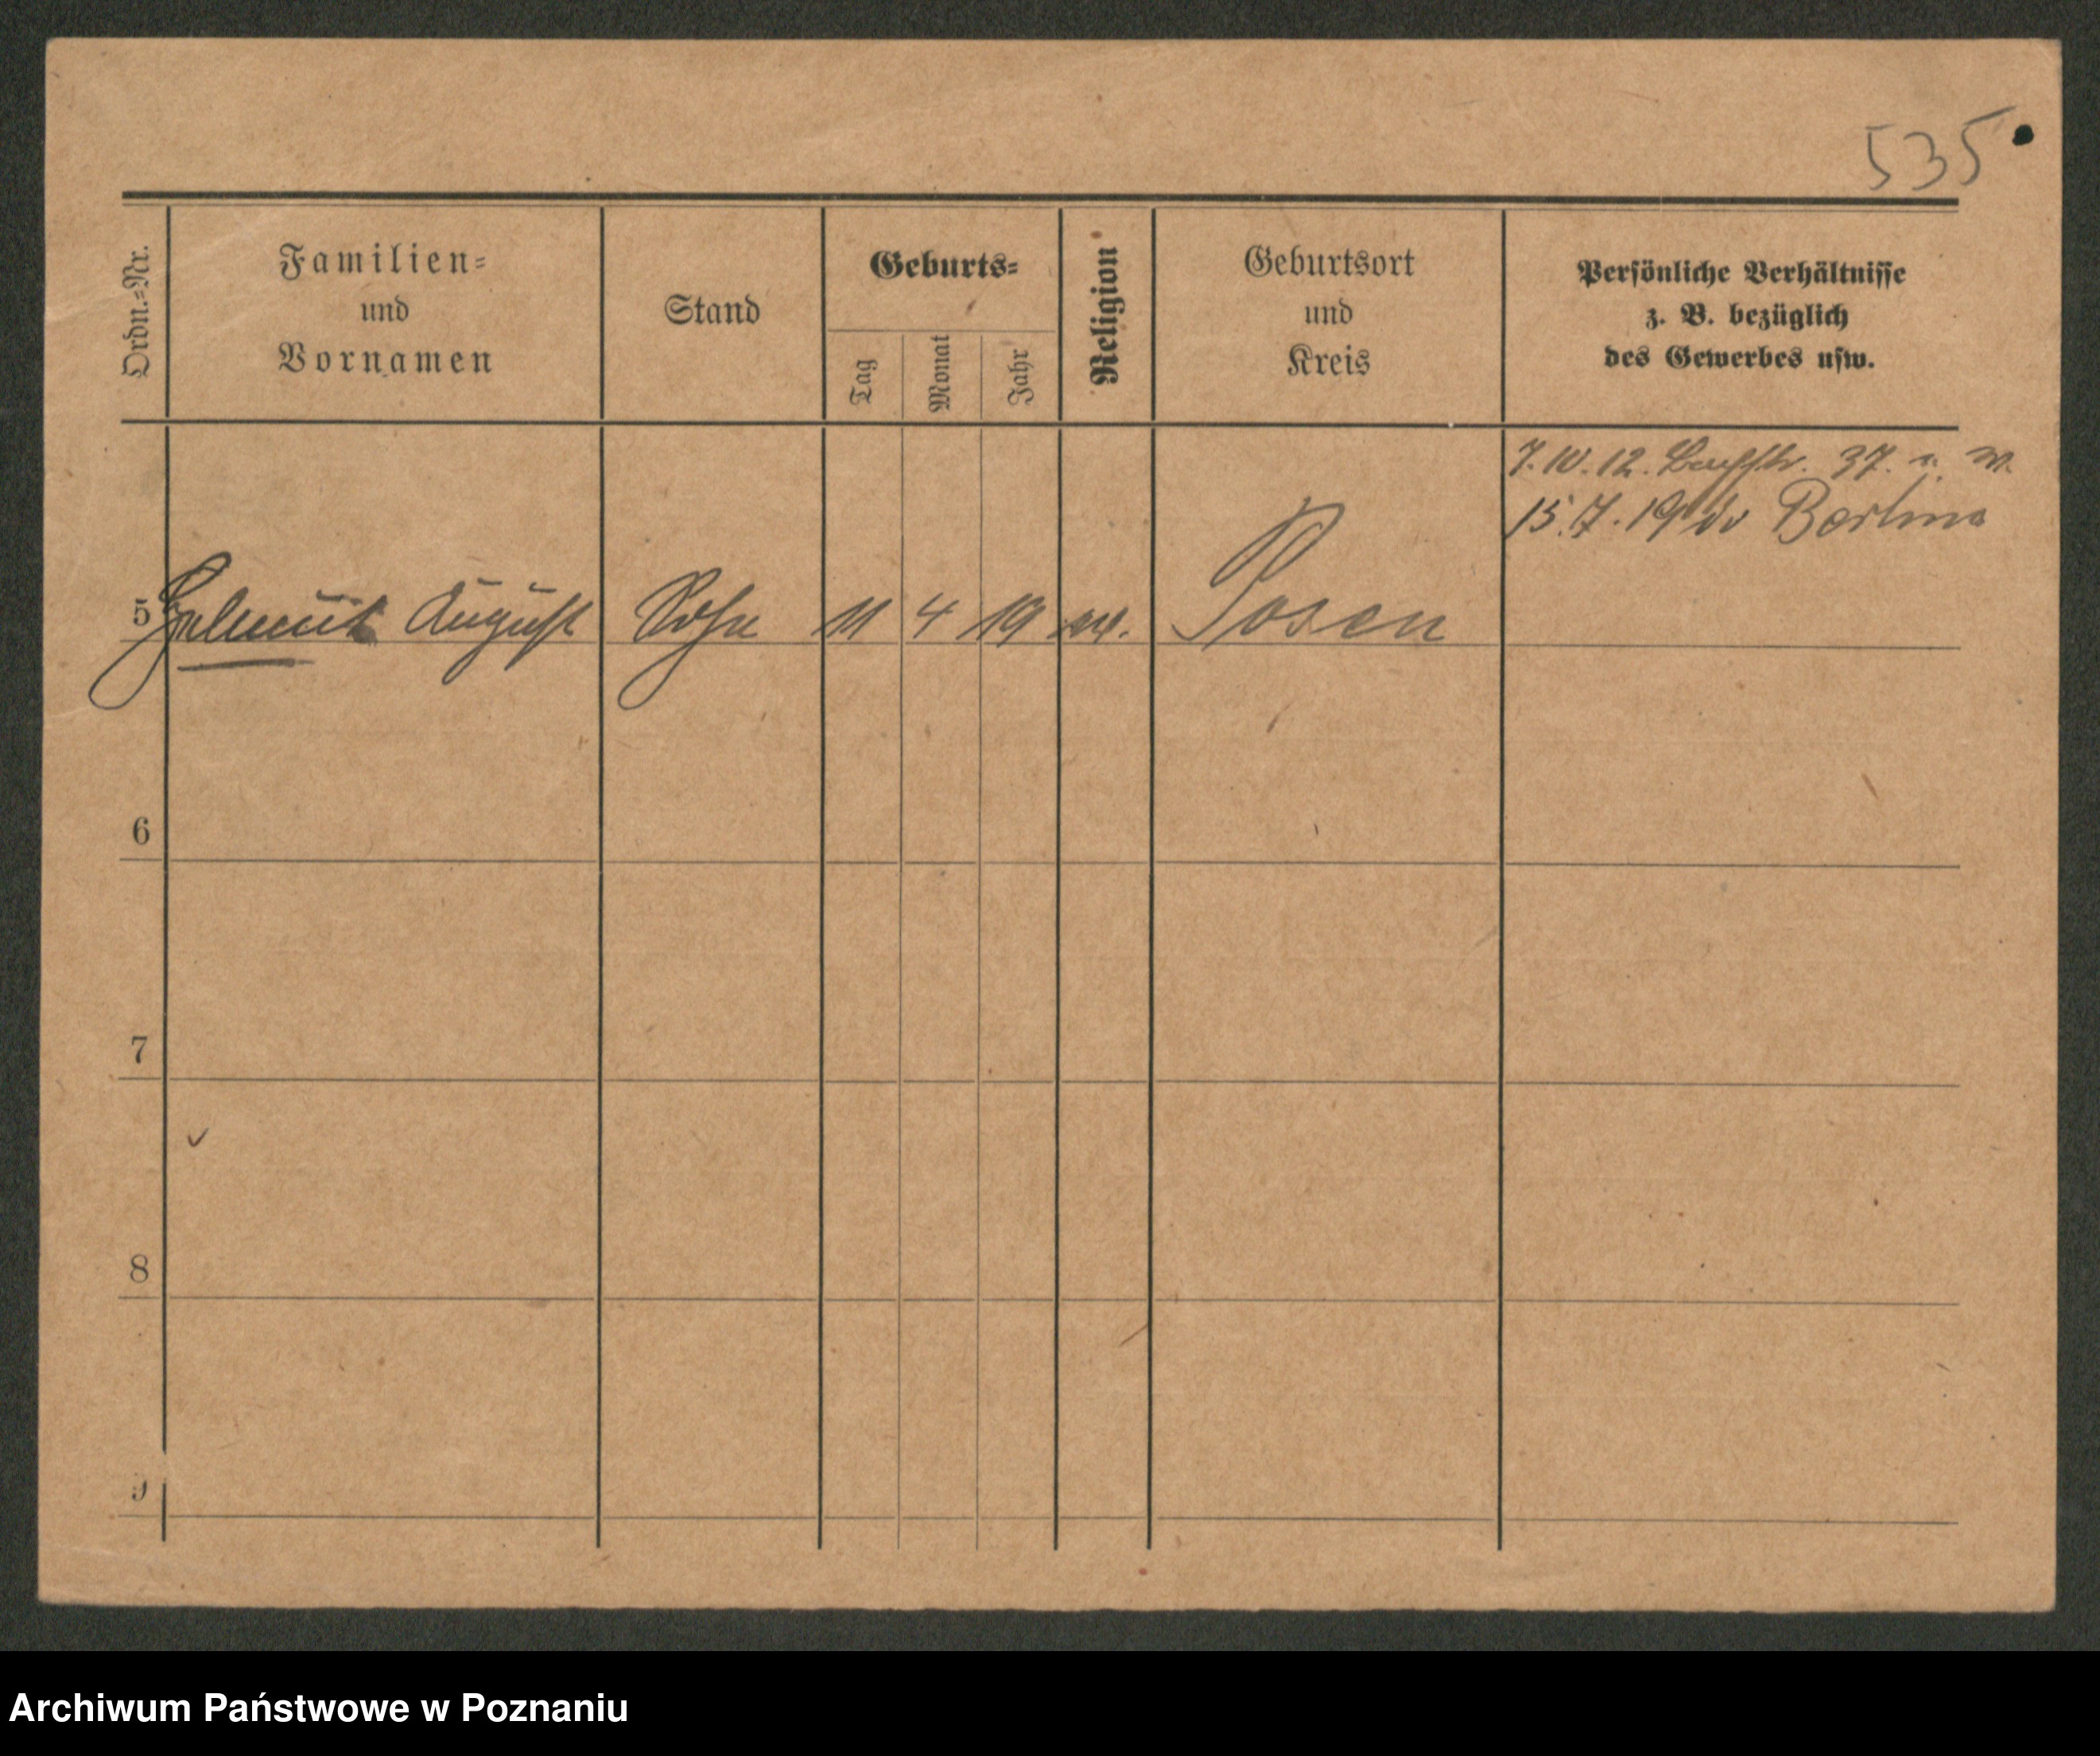 535
Ordn.=Nr.
Familien=
und
Vornamen
Stand
Geburts=
Tag
Monat
Jahr
Religion
Geburtsort
und
Kreis
Persönliche Verhältnisse
z. B. bezüglich
des Gewerbes usw.
7.10.12. 37.
15.7.19 Berlin
5 Helmut August Sohn 11 4 19 ev. Posen
6
7
8
9
Archiwum Państwowe w Poznaniu